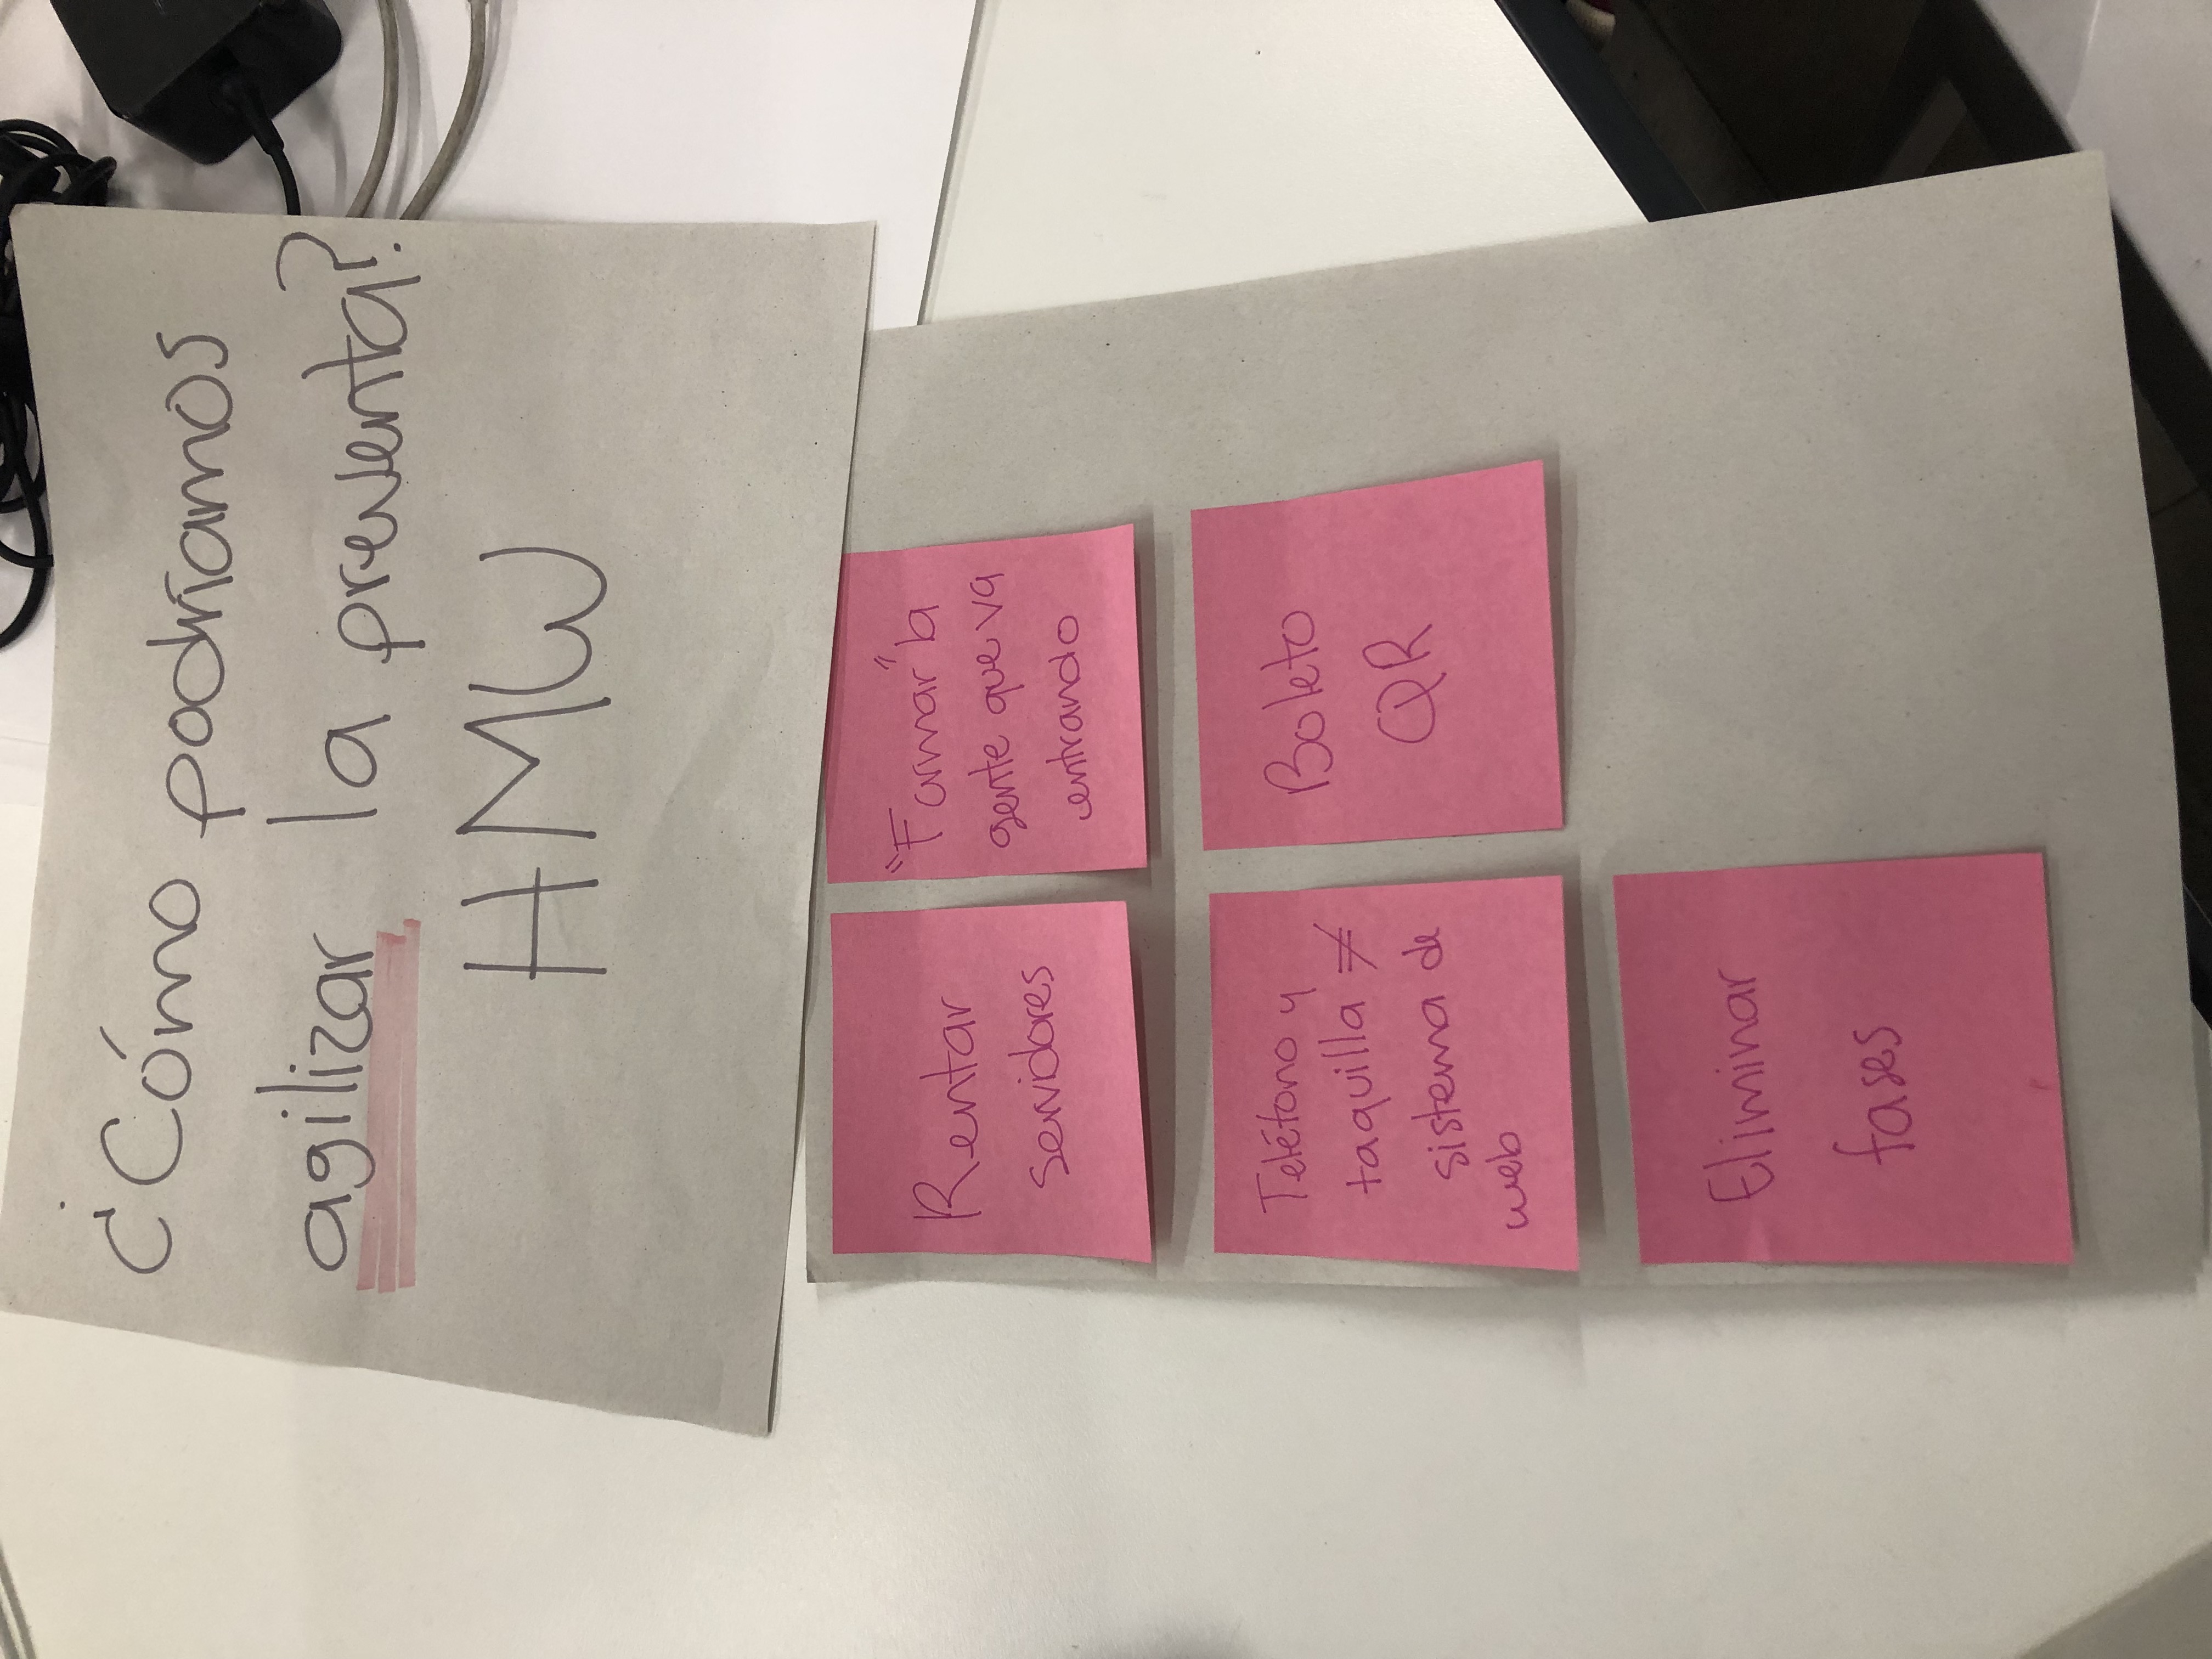 ¿Cómo podríamos
agilizar la preventa?
HMW
Rentar
servidores
"Formar" la
gente que va
entrando
Teléfono y
taquilla ≠
sistema de
web
Boleto
QR
Eliminar
fases